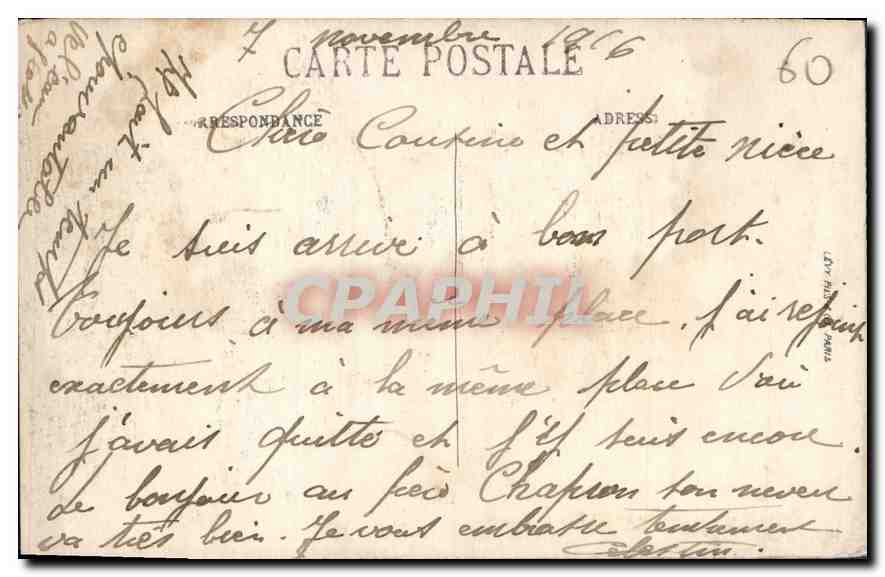 7 novembre 1916
CARTE POSTALE
60
RRESPONDANCE
ADRESS
Chère Cousine et petite nièce
Je suis arrivé à bon port.
toujours à ma même place, j'ai rejoint
exactement à la même place d'où
j'avais quitté et j'y suis encore.
Le bonjour au père Chapron ton neveu
va très bien. Je vous embrasse tendrement
Celestin.
Il fait un temps
épouvantable
de l'eau
à
LÉVY FILS PARIS
CPAPHIL